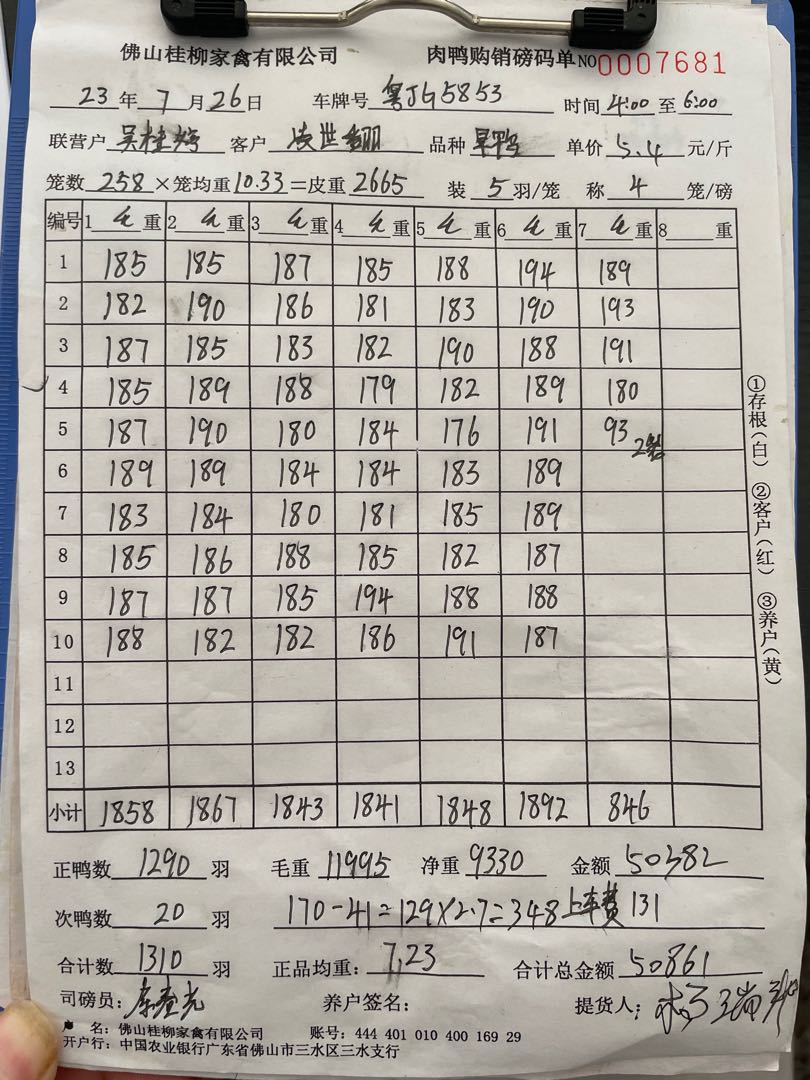 佛山桂柳家禽有限公司 肉鸭购销磅码单 NO 0007681
23 年 7 月 26 日 车牌号 粤JG5853 时间 4:00 至 6:00
联营户 吴桂辉 客户 凌世翻 品种 单价 5.4 元/斤
笼数 258 × 笼均重 10.33 = 皮重 2665 装 5 羽/笼 称 4 笼/磅
编号 1 毛 重 2 毛 重 3 毛 重 4 毛 重 5 毛 重 6 毛 重 7 毛 重 8 重
1 185 185 187 185 188 194 189
2 182 190 186 181 183 190 193
3 187 185 183 182 190 188 191
4 185 189 188 179 182 189 180
5 187 190 180 184 176 191 93 2笼
6 189 189 184 184 183 189
7 183 184 180 181 185 189
8 185 186 188 185 182 187
9 187 187 185 194 188 188
10 188 182 182 186 191 187
11
12
13
小计 1858 1867 1843 1841 1848 1892 846
正鸭数 1290 羽 毛重 11995 净重 9330 金额 50382
次鸭数 20 羽 170-41=129×2.7=348 上车费 131
合计数 1310 羽 正品均重: 7.23 合计总金额 50861
司磅员: 养户签名: 提货人:
户 名: 佛山桂柳家禽有限公司 账号: 444 401 010 400 169 29
开户行: 中国农业银行广东省佛山市三水区三水支行
①存根(白) ②客户(红) ③养户(黄)